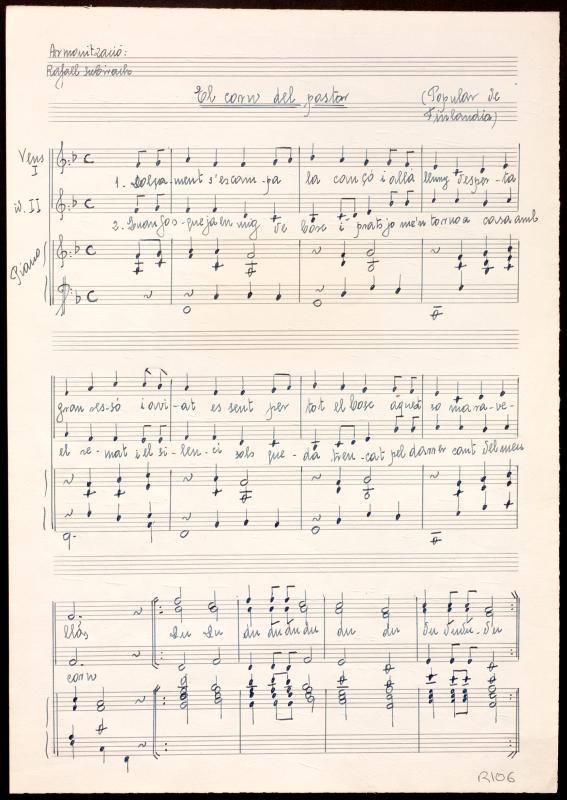 Armonització:
Rafael Subirachs
El corn del pastor
(Popular de
Finlandia)
Veus
I
1. Dolça-ment s'escam-pa la cançó i allà lluny desper-ta
II
2. Quan fos-queja en mig de bosc i prats jo me'n torno a casa amb
Piano
gran res-só i avi-at es sent per tot el bosc aquest so mara-ve-
el re-mat i el si-len-ci sols que-da tren-cat pel darrer cant del meu
llós du du du du du du du du du du du du
corn
R106